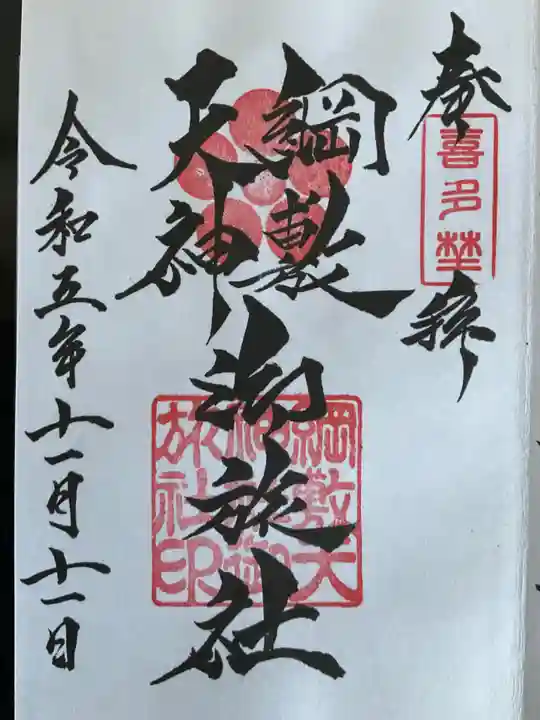 奉拝
喜多埜
綱敷
天神
御旅社
綱敷天神御旅社印
令和五年十一月十一日